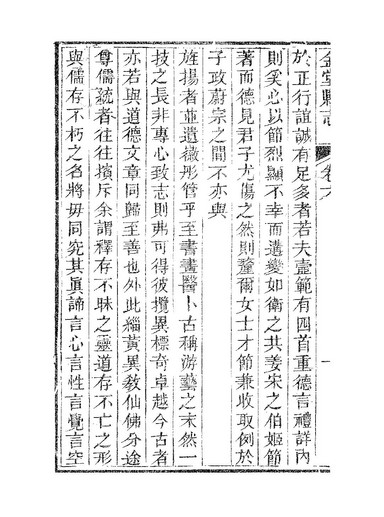 金堂縣志　卷六　一
於正行誼誠有足多者若夫壼範有四首重德言禮詳內
則奚必以節烈顯不幸而遘變如衞之共姜宋之伯姬節
著而德見君子尤傷之然則釐爾女士才節兼收取例於
子政蔚宗之間不亦與
旌揚者並遺徽彤管乎至書畫醫卜古稱游藝之末然一
技之長非專心致志則弗可得彼攬異標奇卓越今古者
亦若與道德文章同歸至善也外此緇黃異教仙佛分途
尊儒統者往往擯斥余謂釋存不昧之靈道存不亡之形
與儒存不朽之名將毋同究其眞諦言心言性言覺言空